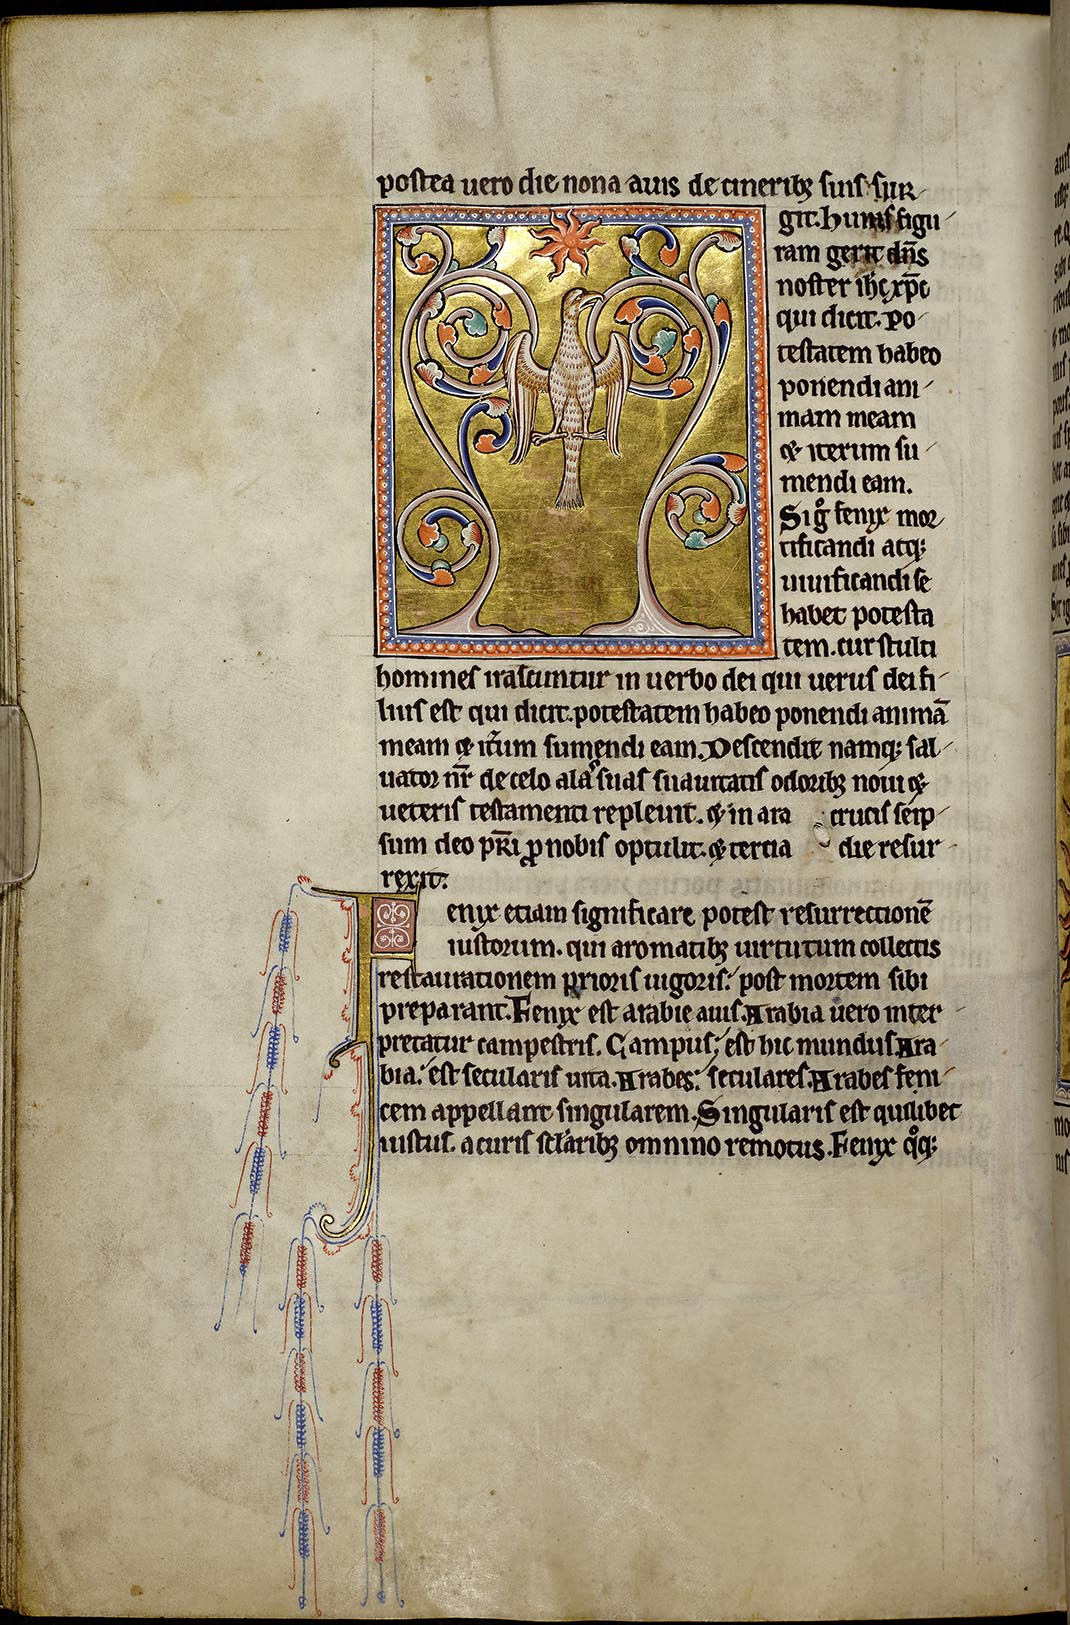 postea uero die nona auis de cinerib; suis sur
git. Huius figu
ram gerit dn̄s
noster ih̄c xp̄c
qui dicit. Po
testatem habeo
ponendi ani
mam meam
⁊ iterum su
mendi eam.
Sigͦ fenix mor
tificandi atq;
uiuificandi se
habet potesta
tem. cur stulti
homines irascuntur in uerbo dei qui uerus dei fi
lius est qui dicit. potestatem habeo ponendi animā
meam ⁊ it̄um sumendi eam. Descendit namq; sal
uator nr̄ de celo alas suas suauitatis odorib; noui ⁊
ueteris testamenti repleuit. ⁊ in ara crucis seip
sum deo pr̄i ꝓ nobis optulit. ⁊ tertia die resur
rexit.
Fenix etiam significare potest resurrectionē
iustorum. qui aromatib; uirtutum collectis
restaurationem prioris uigoris: post mortem sibi
preparant. Fenix est arabie auis. Arabia uero inter
pretatur campestris. Campus; est hic mundus. Ara
bia: est secularis uita. Arabes: seculares. Arabes feni
cem appellant singularem. Singularis est quilibet
iustus. a curis sc̄larib; omnino remotus. Fenix qͦq;